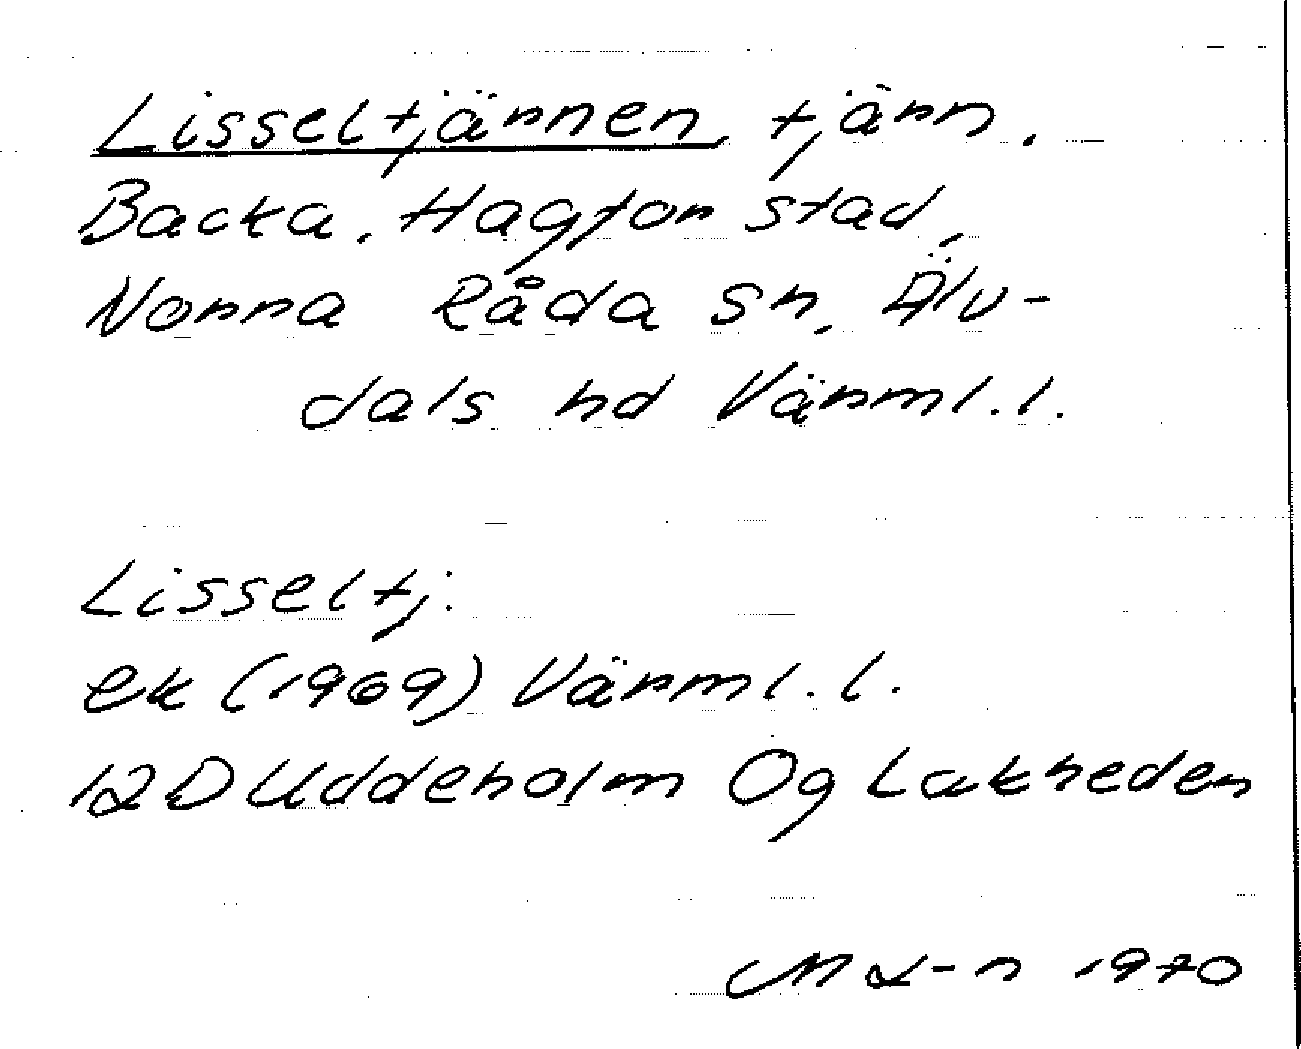 Lisseltjärnen, tjärn.
Backa, Hagfors stad,
Norra Råda sn, Älv-
dals hd Värml.l.
Lisseltj.
ek (1969) Värml.l.
12D Uddeholm Og Lakheden
1970